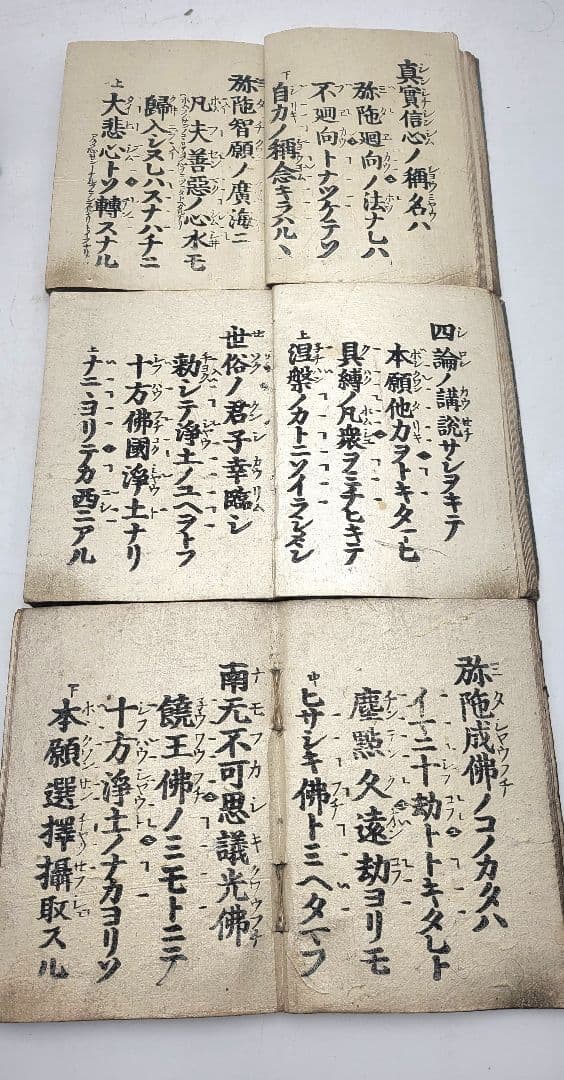 真實信心ノ稱名ハ
弥陁廻向ノ法ナレハ
不廻向トナツケテソ
下
自力ノ稱念キラハルヽ
弥陁智願ノ廣海ニ
凡夫善惡ノ心水モ
歸入シヌレハスナハチニ
上
大悲心トソ轉スナル
四論ノ講説サシヲキテ
本願他力ヲトキタマヒ
具縛ノ凡衆ヲミチヒキテ
上
涅槃ノカトニソイラシメシ
世俗ノ君子幸臨シ
勅シテ浄土ノユヘヲトフ
十方佛國浄土ナリ
上
ナニヽヨリテカ西ニアル
弥陁成佛ノコノカタハ
イマニ十劫トトキタレト
塵點久遠劫ヨリモ
中
ヒサシキ佛トミヘタマフ
南无不可思議光佛
饒王佛ノミモトニテ
十方浄土ノナカヨリソ
下
本願選擇攝取スル